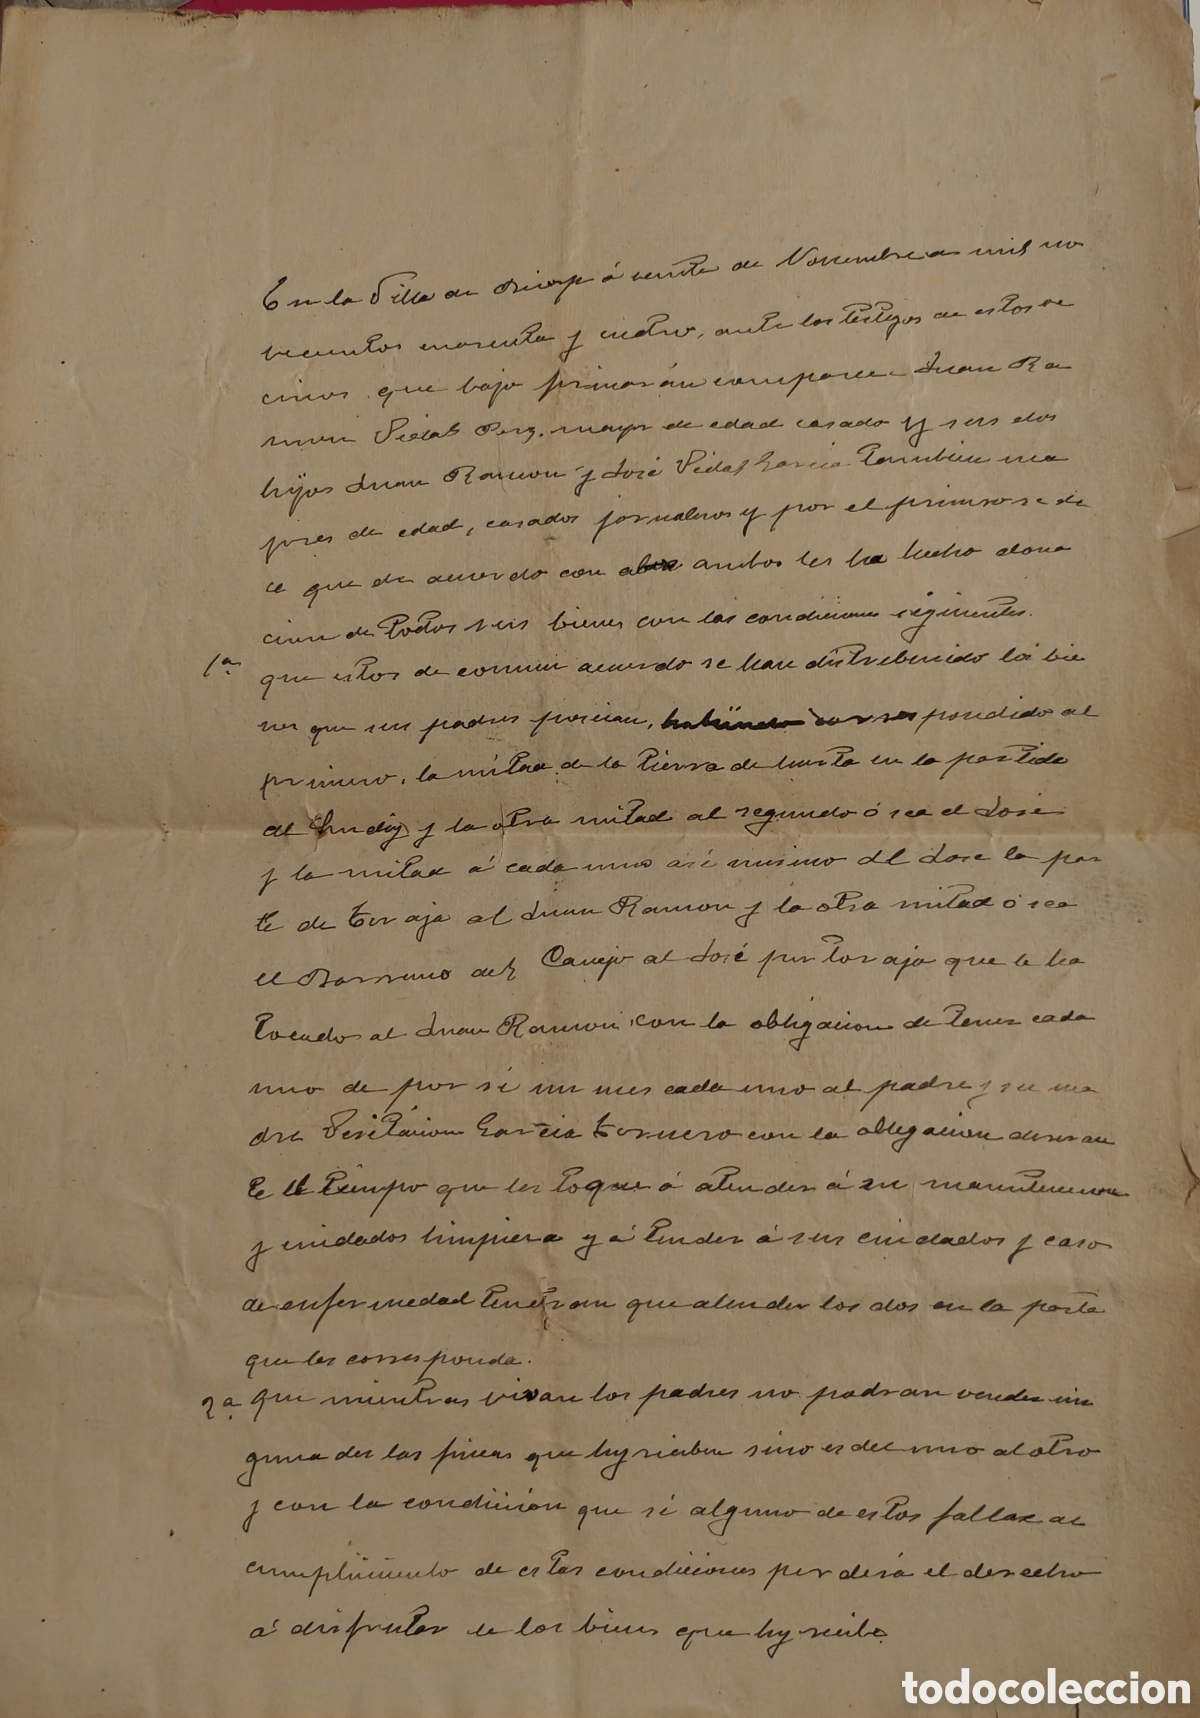 En la Villa de Bicorp á veinte de Noviembre de mil no
vecientos cuarenta y cuatro, ante los testigos de estos ve
cinos que bajo firmarán comparece Juan Ra
mon Vidal Perez, mayor de edad casado y sus dos
hijos Juan Ramon y José Vidal Garcia tambien ma
yores de edad, casados jornaleros y por el primero se di
ce que de acuerdo con ambos les ha hecho dona
cion de todos sus bienes con las condiciones siguientes.
1ª que estos de comun acuerdo se han distrebuido los bie
nes que sus padres poseian, habiendo correspondido al
primero, la mitad de la tierra de huerta en la partida
al y la otra mitad al segundo ó sea el José
y la mitad á cada uno asi mismo del José la par
te de al Juan Ramon y la otra mitad ó sea
el Barranco del Conejo al José que le ha
tocado al Juan Ramon, con la obligacion de tener cada
uno de por sí un mes cada uno al padre y su ma
dre Visitacion Garcia con la obligacion duran
te el tiempo que les toque á atender á su manutencion
y cuidados limpieza y á tender á sus cuidados y caso
de enfermedad tendran que atender los dos en la parte
que les corresponda.
2ª que mientras vivan los padres no podran vender nin
guna de las fincas que hoy reciben sino es del uno al otro
y con la condición que si alguno de estos faltase al
cumplimiento de estas condiciones perderá el derecho
á disfrutar de los bienes que hoy recibe
todocoleccion